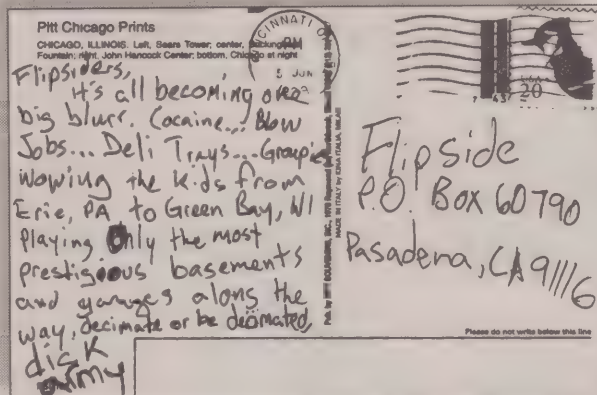 Pitt Chicago Prints
CHICAGO, ILLINOIS. Left, Sears Tower; center,
Fountain; right, John Hancock Center; bottom, Chicago at night
Flipsiders,
it's all becoming one
big blurr. Cocaine... Blow
Jobs... Deli Trays... Groupies
wowing the kids from
Erie, PA to Green Bay, WI
playing only the most
prestigious basements
and garages along the
way, decimate or be decimated,
dick
army
CINCINNATI
PM
5 JUN
MADE IN ITALY by KINA ITALIA, MILAN
USA
20
Flipside
P.O. Box 60790
Pasadena, CA 91116
Please do not write below this line